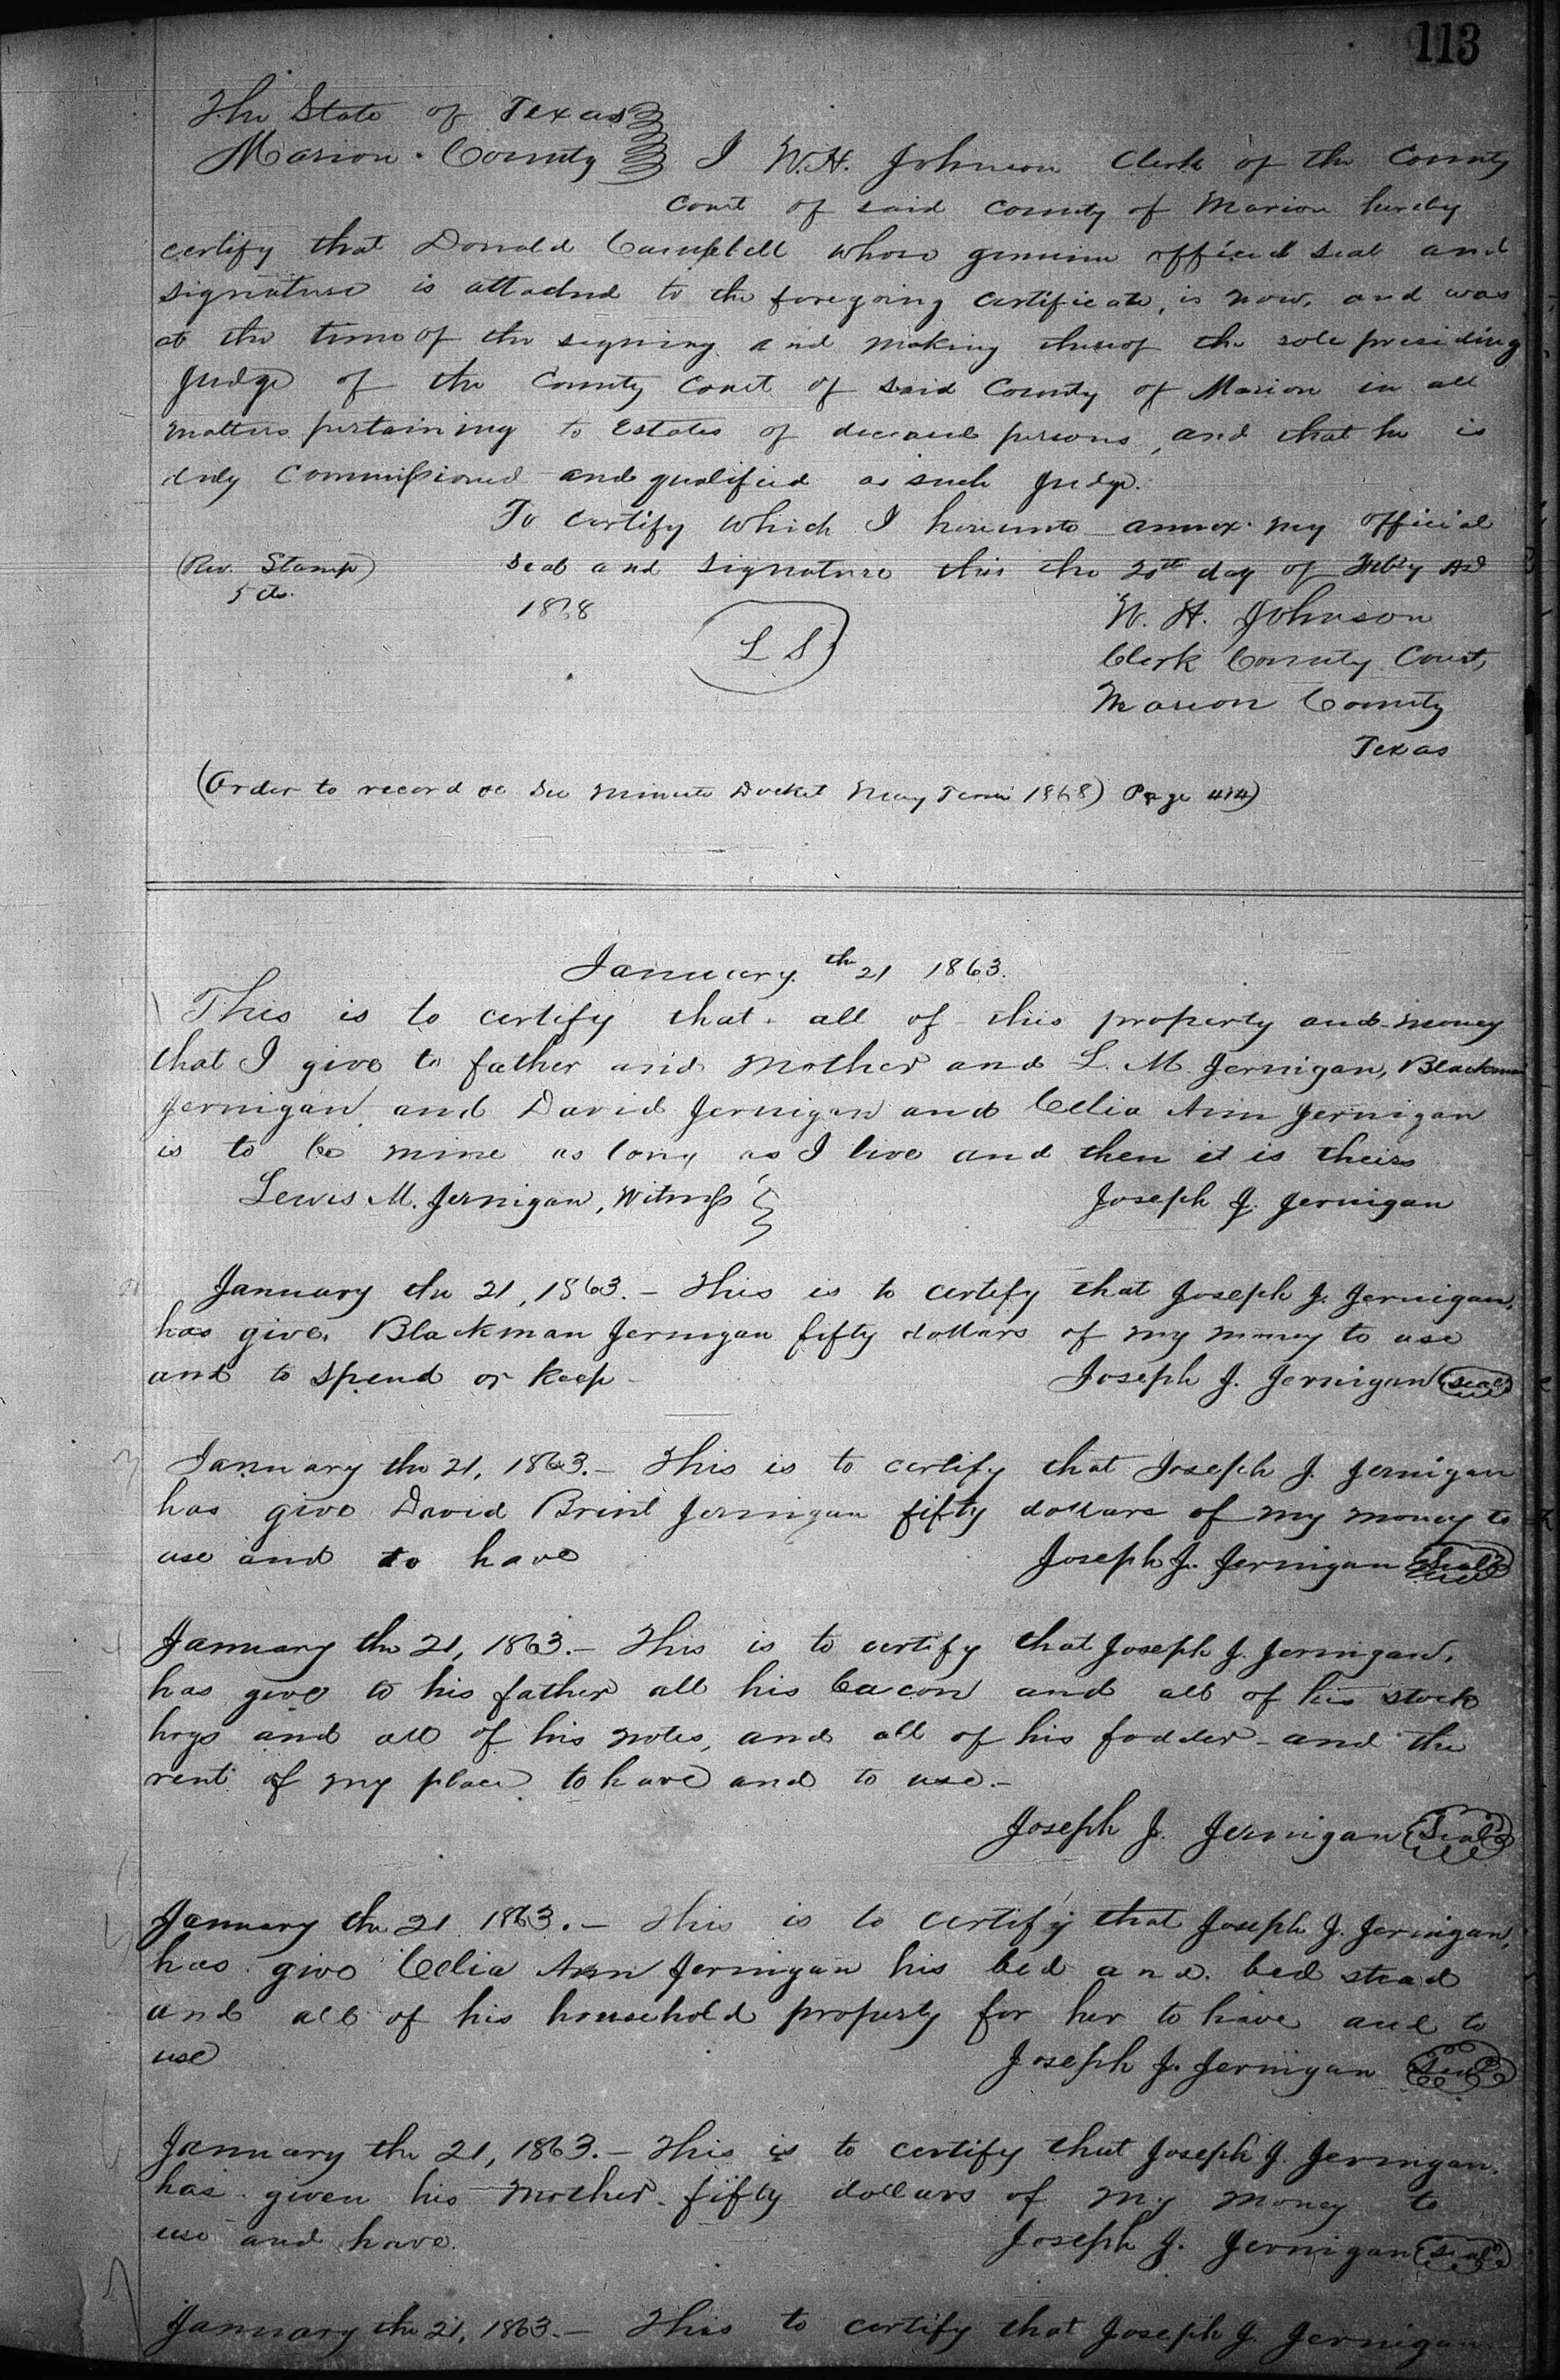 113
The State of Texas
Marion County I W. H. Johnson Clerk of the County
Court of said County of Marion hereby
certify that Donald Campbell whose genuine official seal and
signature is attached to the foregoing certificate, is now, and was
at the time of the signing and making thereof the sole presiding
Judge of the County Court of said County of Marion in all
matters pertaining to Estates of deceased persons, and that he is
duly Commissioned and qualified as such Judge.
To certify which I hereunto annex my official
(Rev. Stamp) seal and signature this the 20th day of Feb'y AD
5 cts. 1868
L S
W. H. Johnson
Clerk County Court,
Marion County
Texas
(Order to record &c See Minute Docket May Term 1868) Page 414)
January th 21 1863.
This is to certify that all of this property and money
that I give to father and Mother and L. M. Jernigan, Blackman
Jernigan and David Jernigan and Celia Ann Jernigan
is to be mine as long as I live and then it is theirs
Lewis M. Jernigan, Witness Joseph J. Jernigan
January the 21, 1863. – This is to certify that Joseph J. Jernigan,
has give Blackman Jernigan fifty dollars of my money to use
and to spend or keep Joseph J. Jernigan (seal)
3
January the 21, 1863. – This is to certify that Joseph J. Jernigan
has give David Brint Jernigan fifty dollars of my money to
use and to have Joseph J. Jernigan (Seal)
4
January the 21, 1863. – This is to certify that Joseph J. Jernigan,
has give to his father all his bacon and all of his stock
hogs and all of his notes, and all of his fodder – and the
rent of my place to have and to use. –
Joseph J. Jernigan (Seal)
5
January the 21 1863. – This is to certify that Joseph J. Jernigan,
has give Celia Ann Jernigan his bed and bed stead
and all of his household property for her to have and to
use Joseph J. Jernigan (Seal)
January the 21, 1863. – This is to certify that Joseph J. Jernigan.
has given his Mother fifty dollars of my money to
use and have. Joseph J. Jernigan (Seal)
7
January the 21, 1863. – This to certify that Joseph J. Jernigan